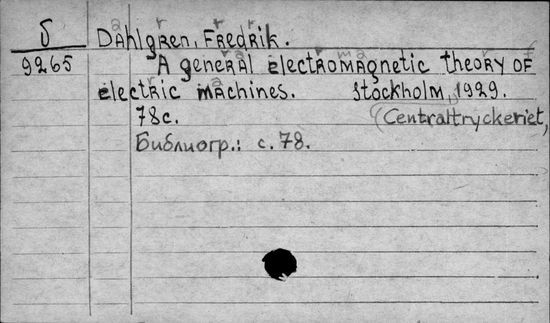 δ Dahlgren, Fredrik.
9265 A general electromagnetic theory of
electric machines. Stockholm, 1929.
78с. (Centraltryckeriet,
Библиогр.: с. 78.